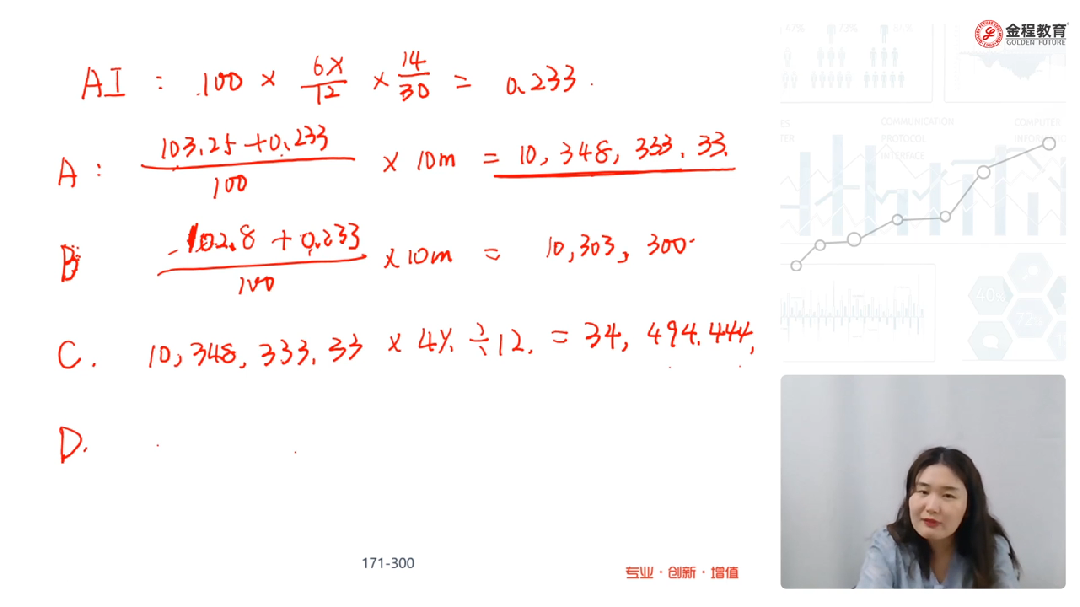 金程教育
GOLDEN FUTURE
AI : 100 × 6%/12 × 14/30 = 0.233.
A : (103.25+0.233)/100 × 10m = 10,348,333.33.
B (102.8+0.233)/100 × 10m = 10,303,300.
C. 10,348,333.33 × 4% ÷ 12. = 34,494.444,
D.
171-300
专业·创新·增值
COMMUNICATION
PROTOCOL
INTERFACE
COMPUTER